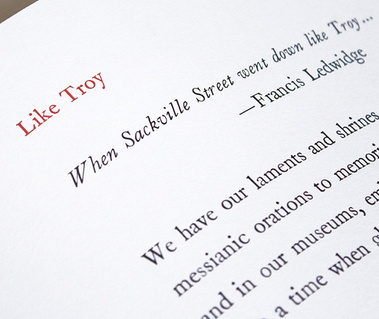 Like Troy
When Sackville Street went down like Troy...
—Francis Ledwidge
We have our laments and shrines
messianic orations to
and in our museums,
a time when